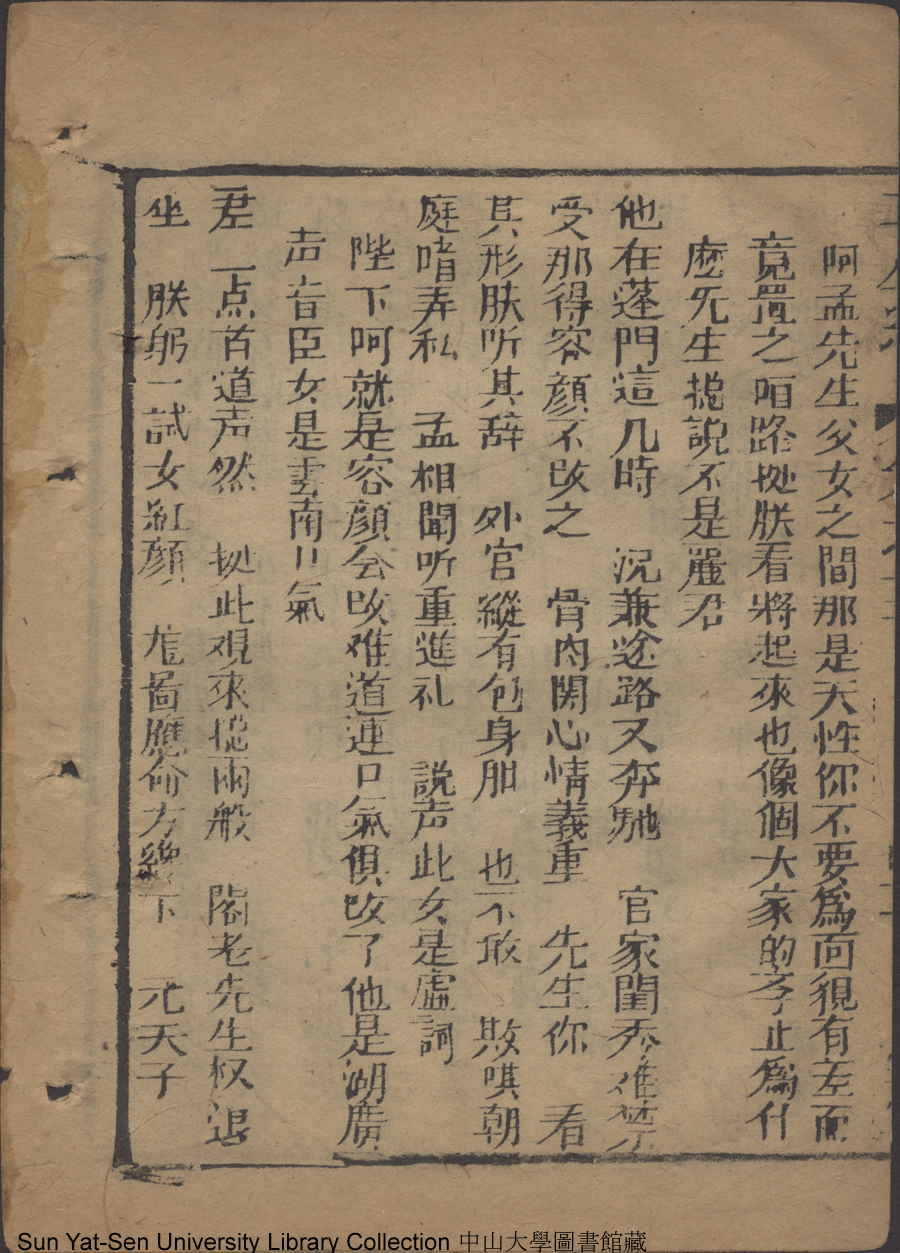 呵孟先生父女之間那是天性你不要爲面貌有差而
竟置之陌路拠朕看將起來也像個大家的孝止爲什
庅先生揔說不是麗君
他在蓬門這几時 況兼途路又奔馳 官家閨秀难禁
受那得容顔不改之 骨肉関心情義重 先生你 看
其形朕听其辞 外官縱有包身胆 也不敢 欺唭朝
庭暗弄私 孟相聞听重進礼 說声此女是虛詞
陛下呵就是容顔会改难道連口氣俱改了他是湖廣
声音臣女是雲南口氣
君一点首道声然 拠此覌來揔兩般 閣老先生权退
坐 朕躬一試女紅顔 龙啚應命方纔下 元天子
Sun Yat-Sen University Library Collection 中山大學圖書館藏